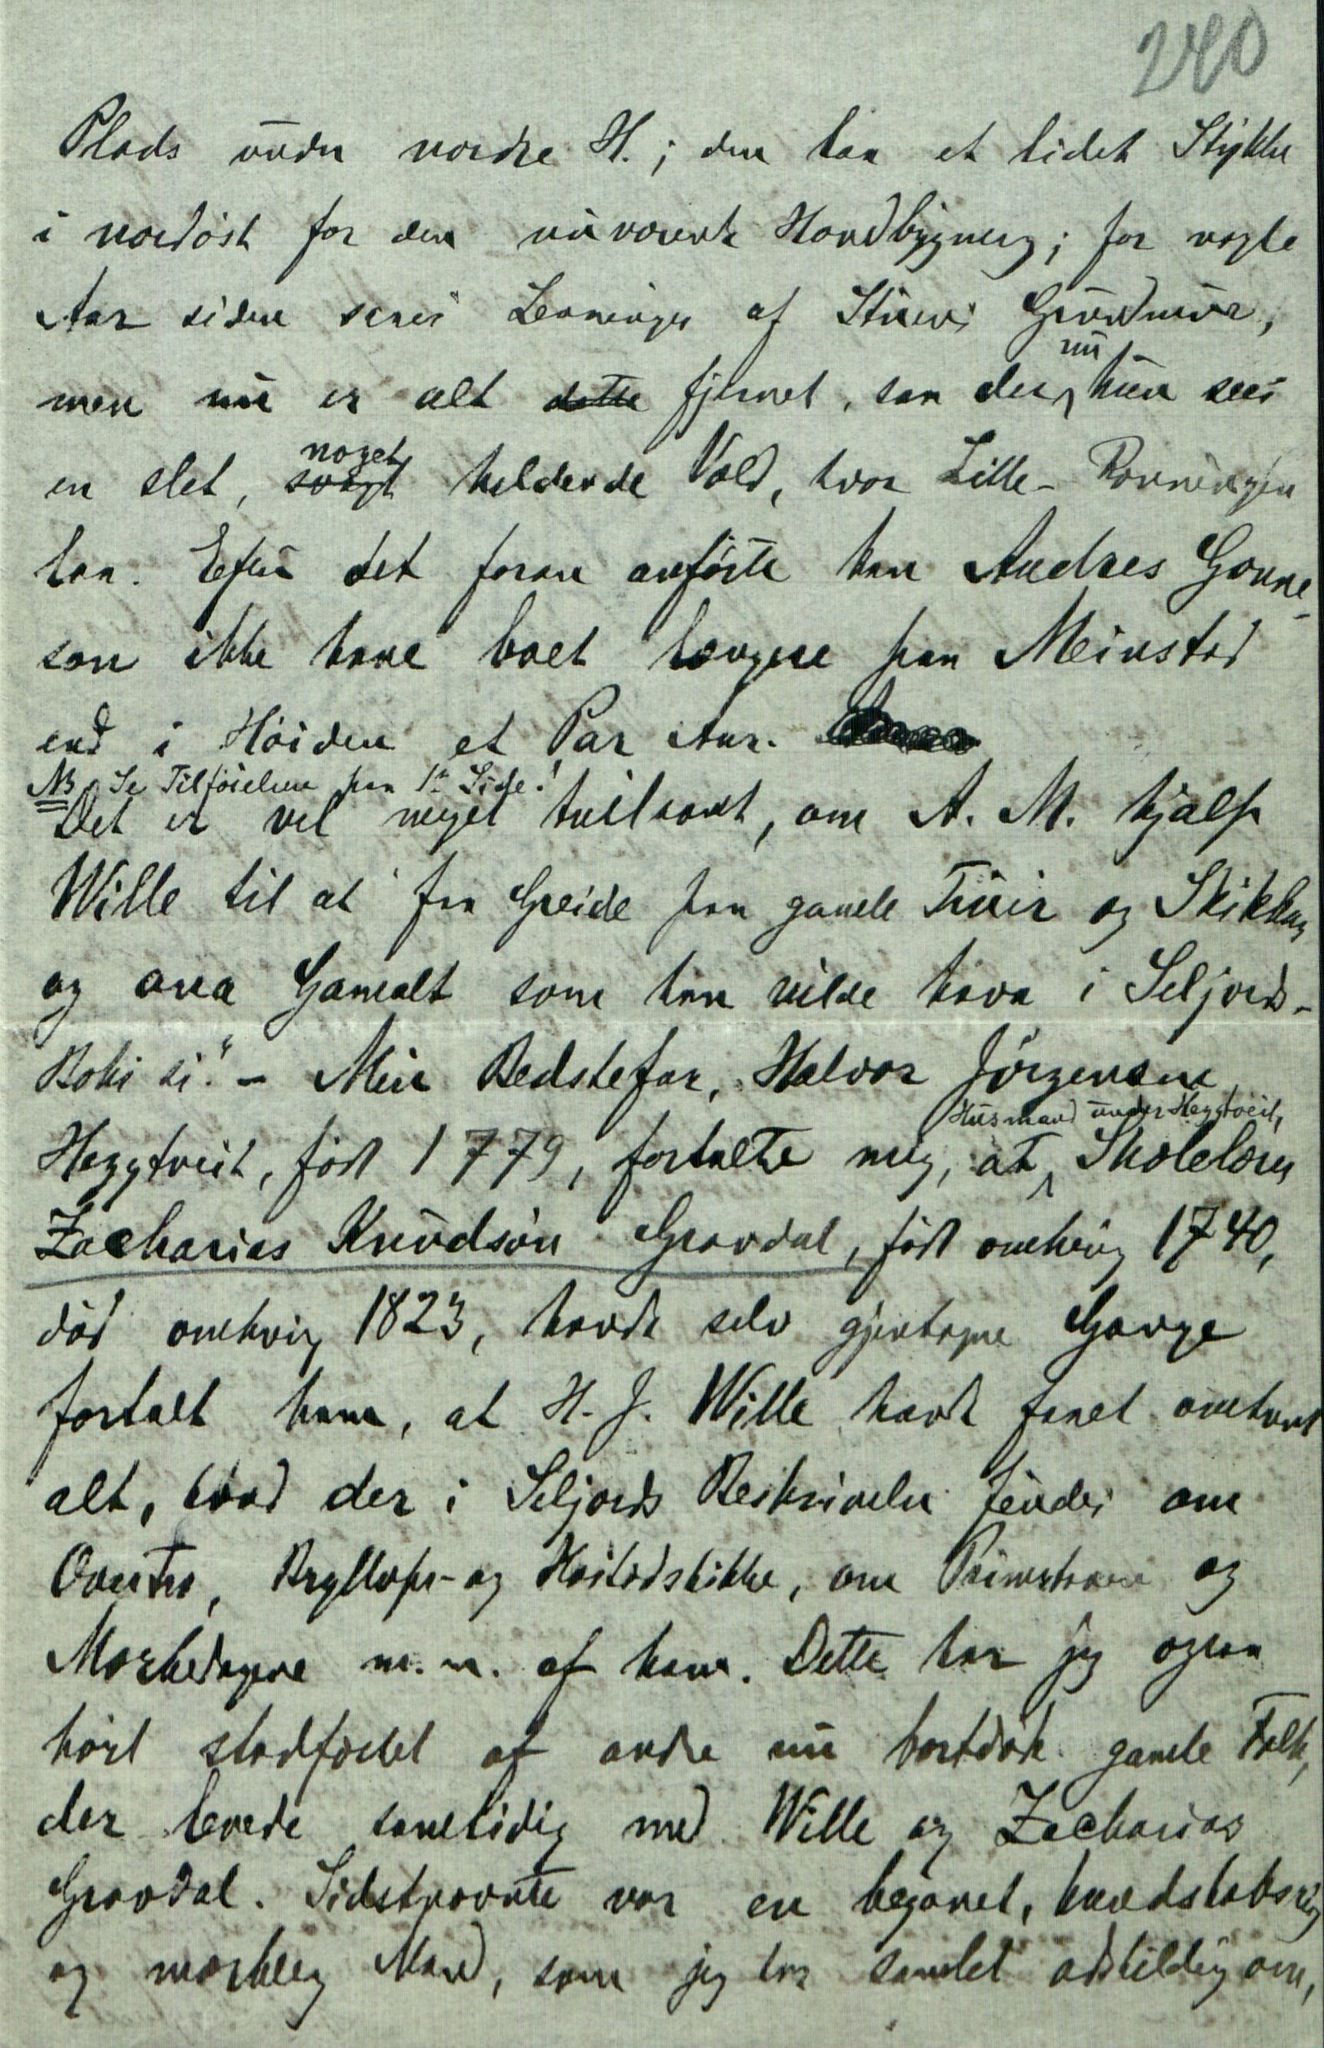 240
Plads under nordre H.; den laa et lidet Stykke
i nordöst for den nuværende Hovedbygning; for nogle
Aar siden saaes Levninger af Stuens Grundmur,
men nu er alt dette fjernet, saa der nu kun sees
en slet, svagt noget heldende Vold, hvor Lille-Rønningen
laa. Efter det foran anförte kan Andres Gonne-
son ikke have boet længere paa Meinstad
end i Höiden et Par Aar.
NB Se Tilföielsen paa 1ste Side!
Det er vel meget tvilsomt, om A. M. hjalp
Wille til at "faa Greide paa gamle Truir og Skikkar
og ana Gamalt som han vilde hava i Seljords-
Boki si." - Min Bedstefar, Halvor Jörgensen
Heggtveit, föd 1779, fortalte mig, at Husmand under Heggtveit, Skolelærer
Zacharias Knudsön Gravdal, född omkring 1740,
död omkring 1823, havde selv gjentagne Gange
fortalt ham, at H. J. Wille havde faaet omtrent
alt, hvad der i Seljords Beskrivelse findes om
Overtro, Bryllups- og Höitidsskikke, om Primstaven og
Mærkedagene m. m. af ham. Dette har jeg ogsaa
hört stadfæstet af andre nu bortdöde gamle Folk,
der levede samtidig med Wille og Zacharias
Gravdal. Sidstnævnte var en begavet, kundskabsrig
og mærkelig Mand, som jeg har samlet adskillig om,